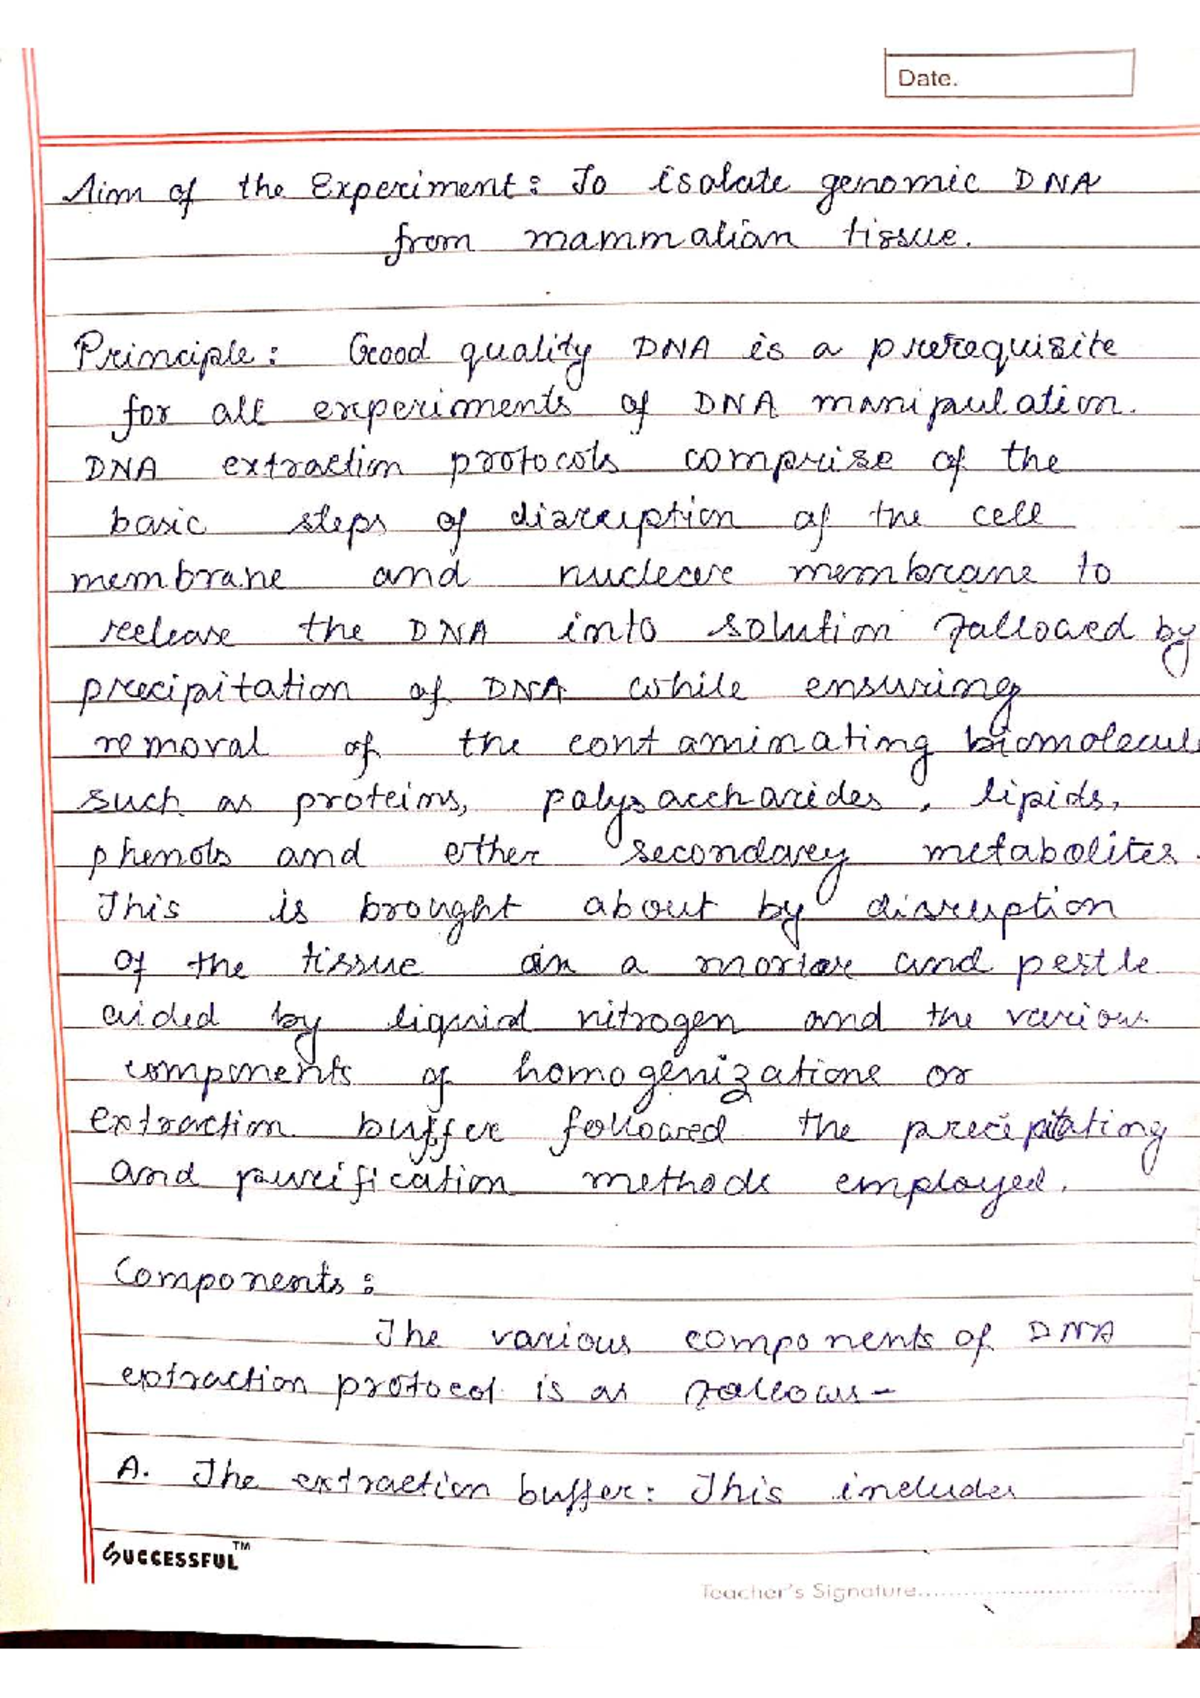 Date.
Aim of the Experiment: To isolate genomic DNA
from mammalian tissue.
Principle: Good quality DNA is a prerequisite
for all experiments of DNA manipulation.
DNA extraction protocols comprise of the
basic steps of disruption of the cell
membrane and nuclear membrane to
release the DNA into solution followed by
precipitation of DNA while ensuring
removal of the contaminating biomolecul
such as proteins, polysaccharides, lipids,
phenols and other secondary metabolites.
This is brought about by disruption
of the tissue in a mortar and pestle
aided by liquid nitrogen and the various
components of homogenizatione or
extraction buffer followed the precipitating
and purification methods employed.
Components:
The various components of DNA
extraction protocol is as follows-
A. The extraction buffer: This includes
SUCCESSFUL™
Teacher's Signature